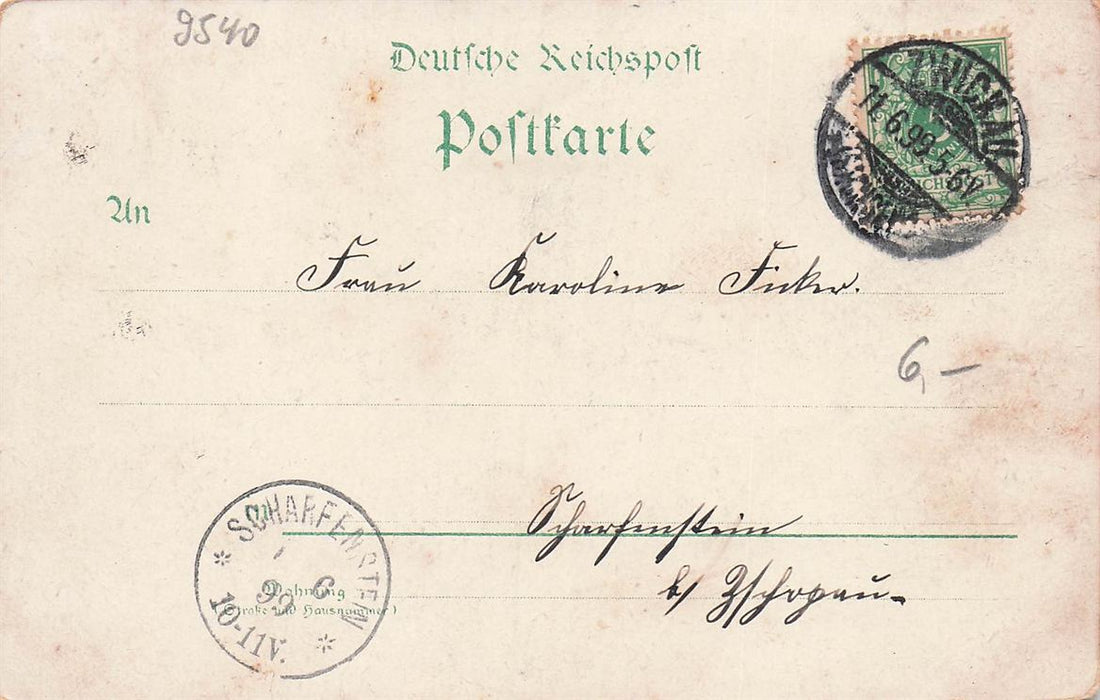 9540
Deutsche Reichspost
Postkarte
ZWICKAU
11.6.99.5-6V
An
Frau Karoline Ficker.
6,—
Scharfenstein
b/ Zschopau.
SCHARFENSTEIN
6
99
10-11V.
Wohnung
(Straße und Hausnummer)